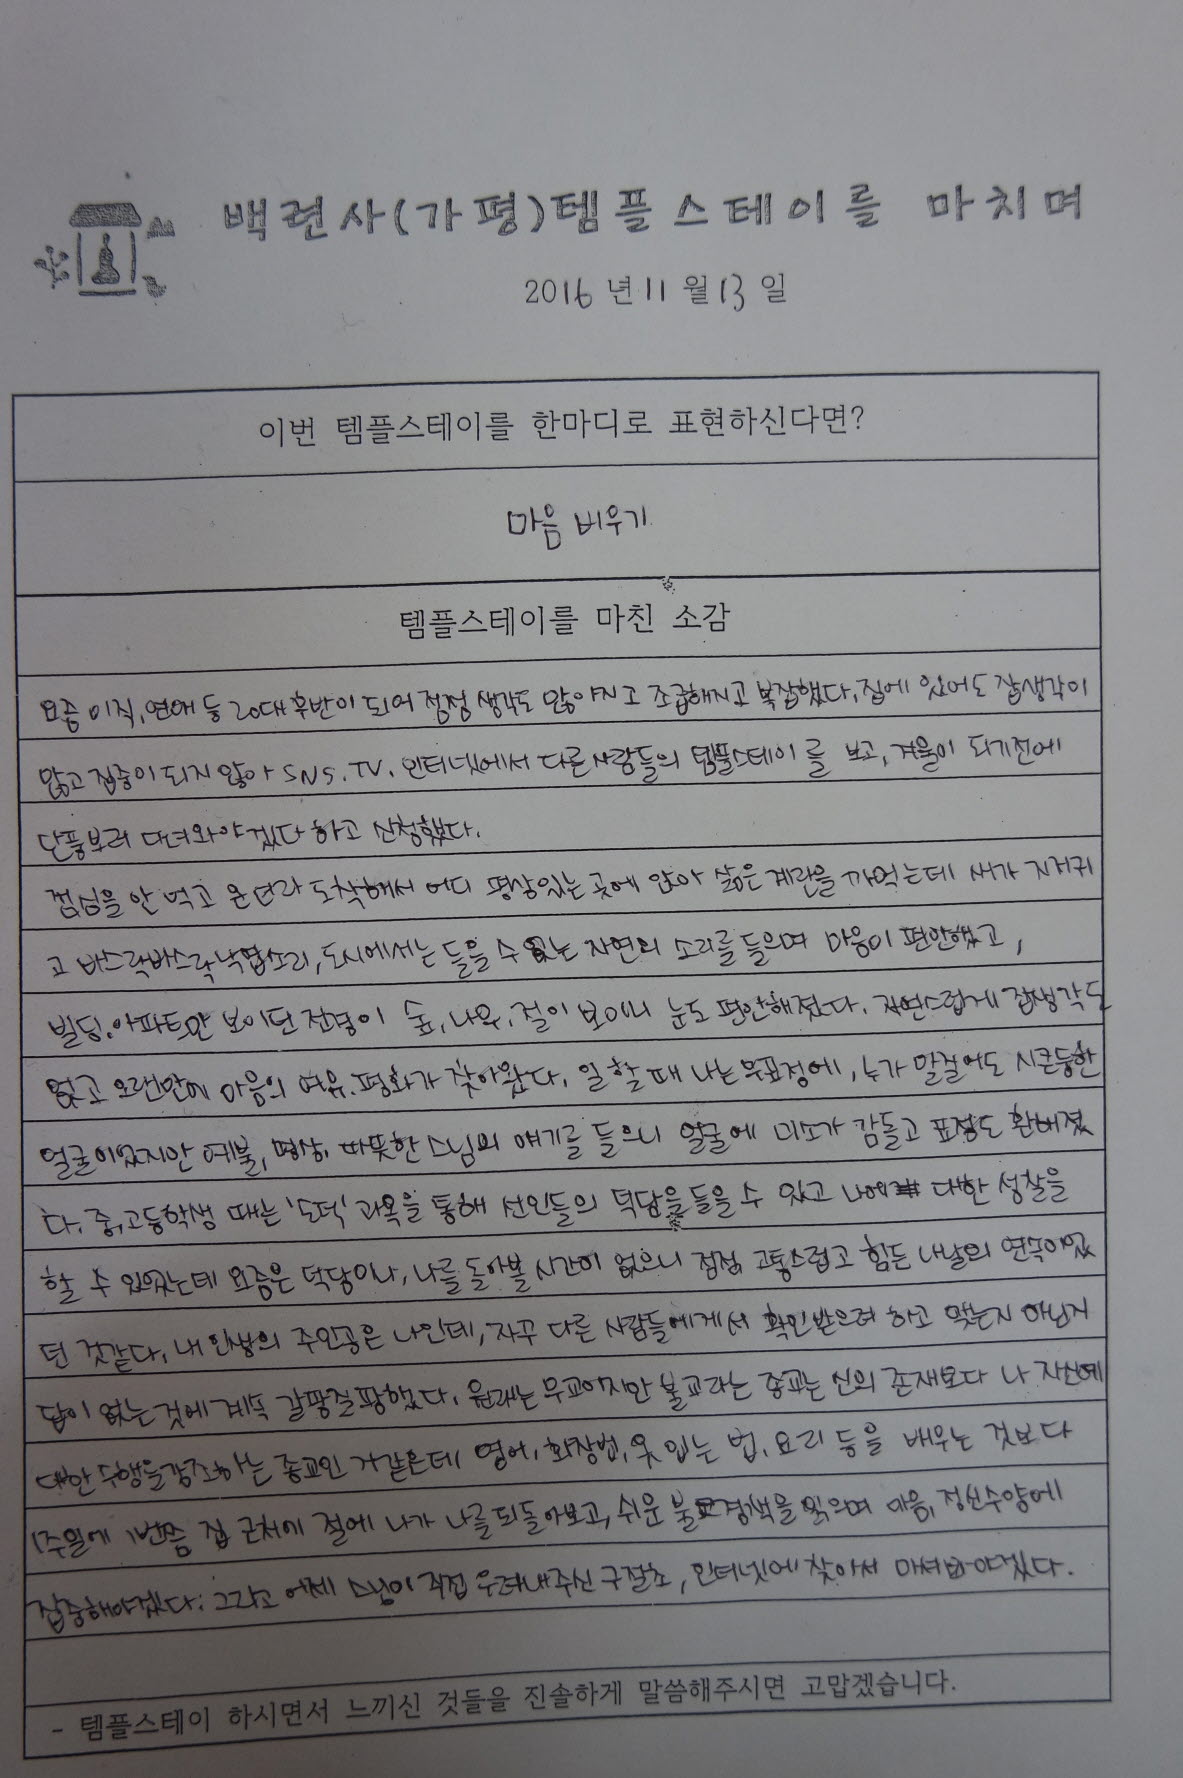 백련사(가평)템플스테이를 마치며
2016 년 11 월 13 일
이번 템플스테이를 한마디로 표현하신다면?
마음 비우기
템플스테이를 마친 소감
요즘 이직, 연애 등 20대 후반이 되어 점점 생각도 많아지고 조급해지고 복잡했다. 집에 있어도 잡생각이
많고 집중이 되지 않아 SNS, TV, 인터넷에서 다른사람들의 템플스테이를 보고, 겨울이 되기전에
단풍부터 다녀와야겠다 하고 신청했다.
점심을 안 먹고 온터라 도착해서 어디 평상있는 곳에 앉아 삶은 계란을 까먹는데 새가 지저귀
고 바스락바스락 낙엽소리, 도시에서는 들을 수 없는 자연의 소리를 들으며 마음이 편안했고,
빌딩, 아파트만 보이던 전망이 숲, 나무, 절이 보이니 눈도 편안해졌다. 자연스럽게 잡생각도
없고 오랜만에 마음의 여유, 평화가 찾아왔다. 일 할 때 나는 무표정에, 누가 말걸어도 시큰둥한
얼굴이었지만 예불, 명상, 따뜻한 스님의 얘기를 들으니 얼굴에 미소가 감돌고 표정도 환해졌
다. 중,고등학생 때는 '도덕' 과목을 통해 선인들의 덕담을 들을 수 있고 나에 대한 성찰을
할 수 있었는데 요즘은 덕담이나, 나를 돌아볼 시간이 없으니 점점 고통스럽고 힘든 나날의 연속이었
던 것같다. 내 인생의 주인공은 나인데, 자꾸 다른 사람들에게서 확인받으려 하고 맞는지 아닌지
답이 없는 것에 계속 갈팡질팡했다. 원래는 무교이지만 불교라는 종교는 신의 존재보다 나 자신에
대한 수행을 강조하는 종교인 거같은데 영어, 화장법, 옷 입는 법, 요리 등을 배우는 것보다
1주일에 1번쯤 집 근처에 절에 나가 나를 되돌아보고, 쉬운 불교경책을 읽으며 마음, 정신수양에
집중해야겠다. 그리고 어제 스님이 직접 우려내주신 구절초, 인터넷에 찾아서 마셔봐야겠다.
- 템플스테이 하시면서 느끼신 것들을 진솔하게 말씀해주시면 고맙겠습니다.